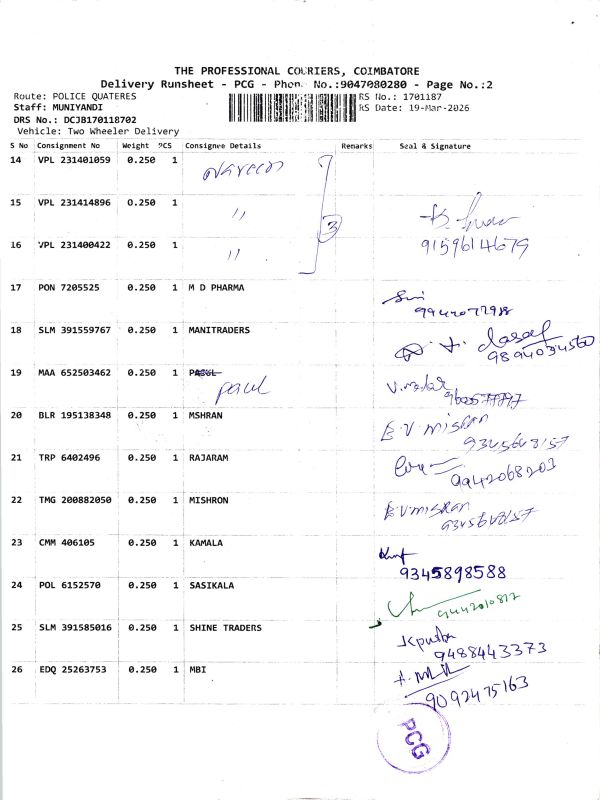 THE PROFESSIONAL COURIERS, COIMBATORE
Delivery Runsheet - PCG - Phone No.:9047080280 - Page No.:2
Route: POLICE QUATERES
RS No.: 1701187
Staff: MUNIYANDI
RS Date: 19-Mar-2026
DRS No.: DCJB170118702
Vehicle: Two Wheeler Delivery
S No Consignment No Weight PCS Consignee Details Remarks Seal & Signature
14 VPL 231401059 0.250 1 Naveen
15 VPL 231414896 0.250 1 "
3
16 VPL 231400422 0.250 1 " 9159614679
17 PON 7205525 0.250 1 M D PHARMA
18 SLM 391559767 0.250 1 MANITRADERS
9894034560
19 MAA 652503462 0.250 1 PAUL
paul
20 BLR 195138348 0.250 1 MSHRAN E.V mishran
9345648157
21 TRP 6402496 0.250 1 RAJARAM
9942068203
22 TMG 200882050 0.250 1 MISHRON E.V mishran
9345648157
23 CMM 406105 0.250 1 KAMALA
9345898588
24 POL 6152570 0.250 1 SASIKALA
9442010812
25 SLM 391585016 0.250 1 SHINE TRADERS
9488443373
26 EDQ 25263753 0.250 1 MBI
9092475163
PCG